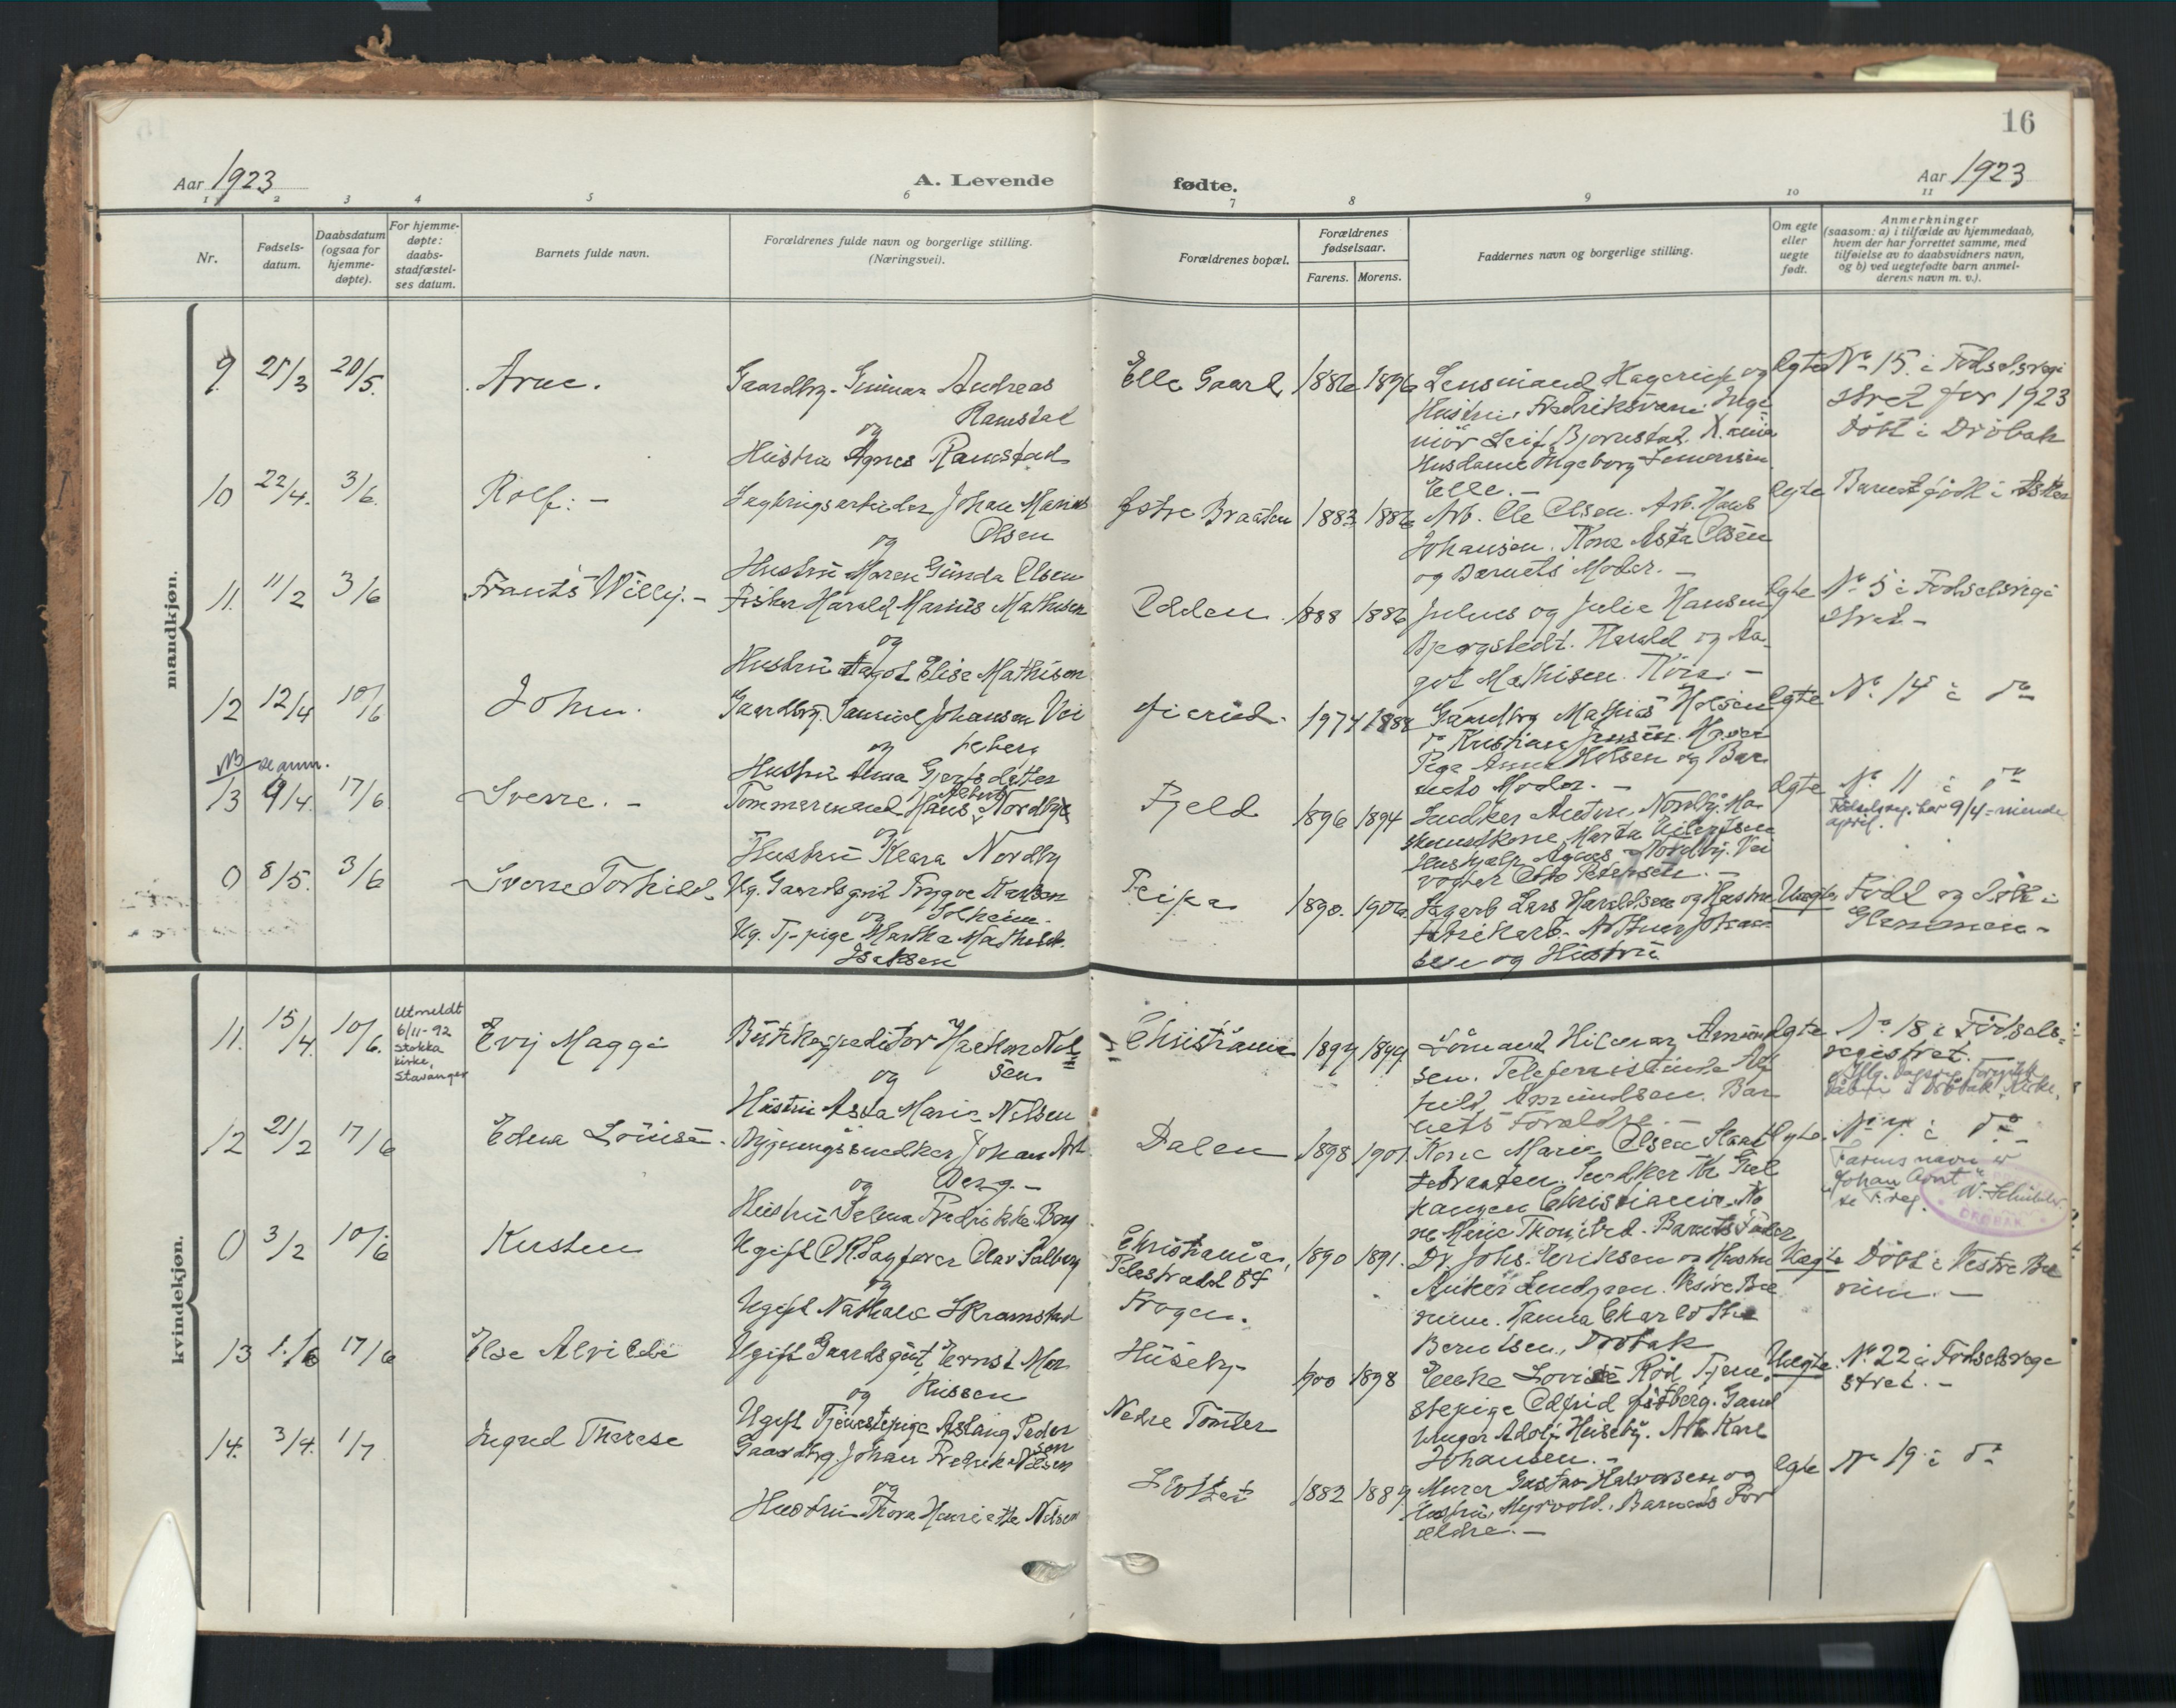 16
Aar 1923
A. Levende
fødte.
Aar 1923
1 2 3 4 5 6 7 8 9 10 11
Nr.
Fødsels-
datum.
Daabsdatum
(ogsaa for
hjemme-
døpte).
For hjemme-
døpte:
daabs-
stadfæstel-
ses datum.
Barnets fulde navn.
Forældrenes fulde navn og borgerlige stilling.
(Næringsvei).
Forældrenes bopæl.
Forældrenes
fødselsaar.
Farens. Morens.
Faddernes navn og borgerlige stilling.
Om egte
eller
uegte
født.
Anmerkninger
(saasom: a) i tilfælde av hjemmedaab,
hvem der har forrettet samme, med
tilføielse av to daabsvidners navn,
og b) ved uegtefødte barn anmel-
derens navn m. v.).
mandkjøn.
9. 25/3 20/5. Arne.
Gaardbr. Gunnar Andreas
Ramstad
og
Hustru Agnes Ramstad
Elle Gaard 1886 1896
Lensmand Hagerup og
Hustru, Fredriksværn. Inge
niør Leif Bjørnstad. X.ania
Husdame Ingeborg
Elle.
Egte
No 15 i Fødselsregi
stret for 1923
Døbt i Drøbak
10 22/4. 3/6. Rolf. -
Johan Marius
Olsen
og
Hustru Maren Gunda Olsen
Østre Braaten 1883 1886
Arb. Ole Olsen. Arb. Hans
Johansen. Kone Asta Olsen
og Barnets Moder. -
Egte
Barnet født i Asker
11. 11/2 3/6 Frants Willy. -
Fisker Harald Marius Mathisen
og
Hustru Aagot Elise Mathisen
Odden 1888 1886
Julius og Julie Hansen
Bjergstedt. Harald og Aa-
got Mathisen. Kone. -
Egte
No 5 i Fødselsregi
stret -
12 12/4 10/6 John.
Gaardbr. Samuel Johansen Vei
og
Hustru Anna Gjertsdatter
1974 1882
Gaardbr Mathias Holsen
do Kristian Jensen.
Pige Anna Holsen og Bar
nets Moder. -
Egte
No. 14 i do
NB se anm.
13 9/4. 17/6. Sverre. -
Tømmermand Hans Albert Nordby
og
Hustru Klara Nordby
Fjeld 1896 1894
Snedker Anton Nordby. Ma-
skinistkone Marta Eilertsen
Hushjælp Agnes Nordby. Vei
vogter Otto Petersen. -
Egte
No 11 i do
Fødselsreg. har 9/4 = niende
april.
0 8/5. 3/6 Sverre Torhild.
Ug. Gaardsgut Trygve Karlsen
og Solheim.
Ug. Tj-pige Martha Mathilde
Isaksen
Peipa 1890. 1906.
Sagarb. Lars Haraldsen og Hustru
Fabrikarb. Arthur Johan-
sen og Hustru
Uegte
Født og døbt i
Glemmen -
kvindekjøn.
11. 15/4. 10/6.
Utmeldt
6/11-92
Stokka
kirke,
Stavanger
Evy Maggi
Butikexpeditør Haakon Niel
sen
og
Hustru Asta Marie Nilsen
Christiania 1899 1899
Lømand Hilmar Amund
sen. Telefonistinde Alf
hild Amundsen. Bar
nets Forældre. -
Egte
No 18 i Fødsels-
registret.
12 21/2 17/6 Edna Louise.
Bygningssnedker Johan Arnt
og Berg. -
Hustru Selma Fredrikke Berg
Dalen 1898 1901.
Kone Marie Olsen
Snedker Kr.
Christiania.
Barnets Fader
Egte.
No 7. i do -
Farens navn er
Johan Arnt
se F.reg.
W. Schübeler.
DRØBAK
0 3/2 10/6 Kirsten
Ugift O.R.Sagfører Olav Solberg
og
Ugift Nathalie Skramstad
Christiania,
Pilestrædet 84
Frogn.
1890 1891.
Dr. Johs. Eriksen og Hustru
Anker Lundgren. Vestre Bæ
rum. Hanna Charlotte
Berntsen, Drøbak
Uegte
Døbt i Vestre Bæ
rum. -
13 1./6 17/6 Else Alvilde
Ugift Gaardsgut Ernst Mar
kussen
og
Ugift Tjenestepige Aslaug Peder
sen
Huseby
Nedre Tomter
1900 1898
Enke Lovise Rød Tjene-
stepige Oldfrid Østberg. Gaard
bruger Adolf Huseby. Arb. Karl
Johansen. -
Uegte.
No. 22 i Fødselsregi
stret. -
14. 3/4. 1/7 Ingrid Therese
Gaardbr. Johan Fredrik Nilsen
og
Hustru Thora Henriette Nilsen
1882 1889.
Murer Gustav Halvorsen og
Hustru, Myrvold. Barnets For
ældre. -
Egte
No 19 i do